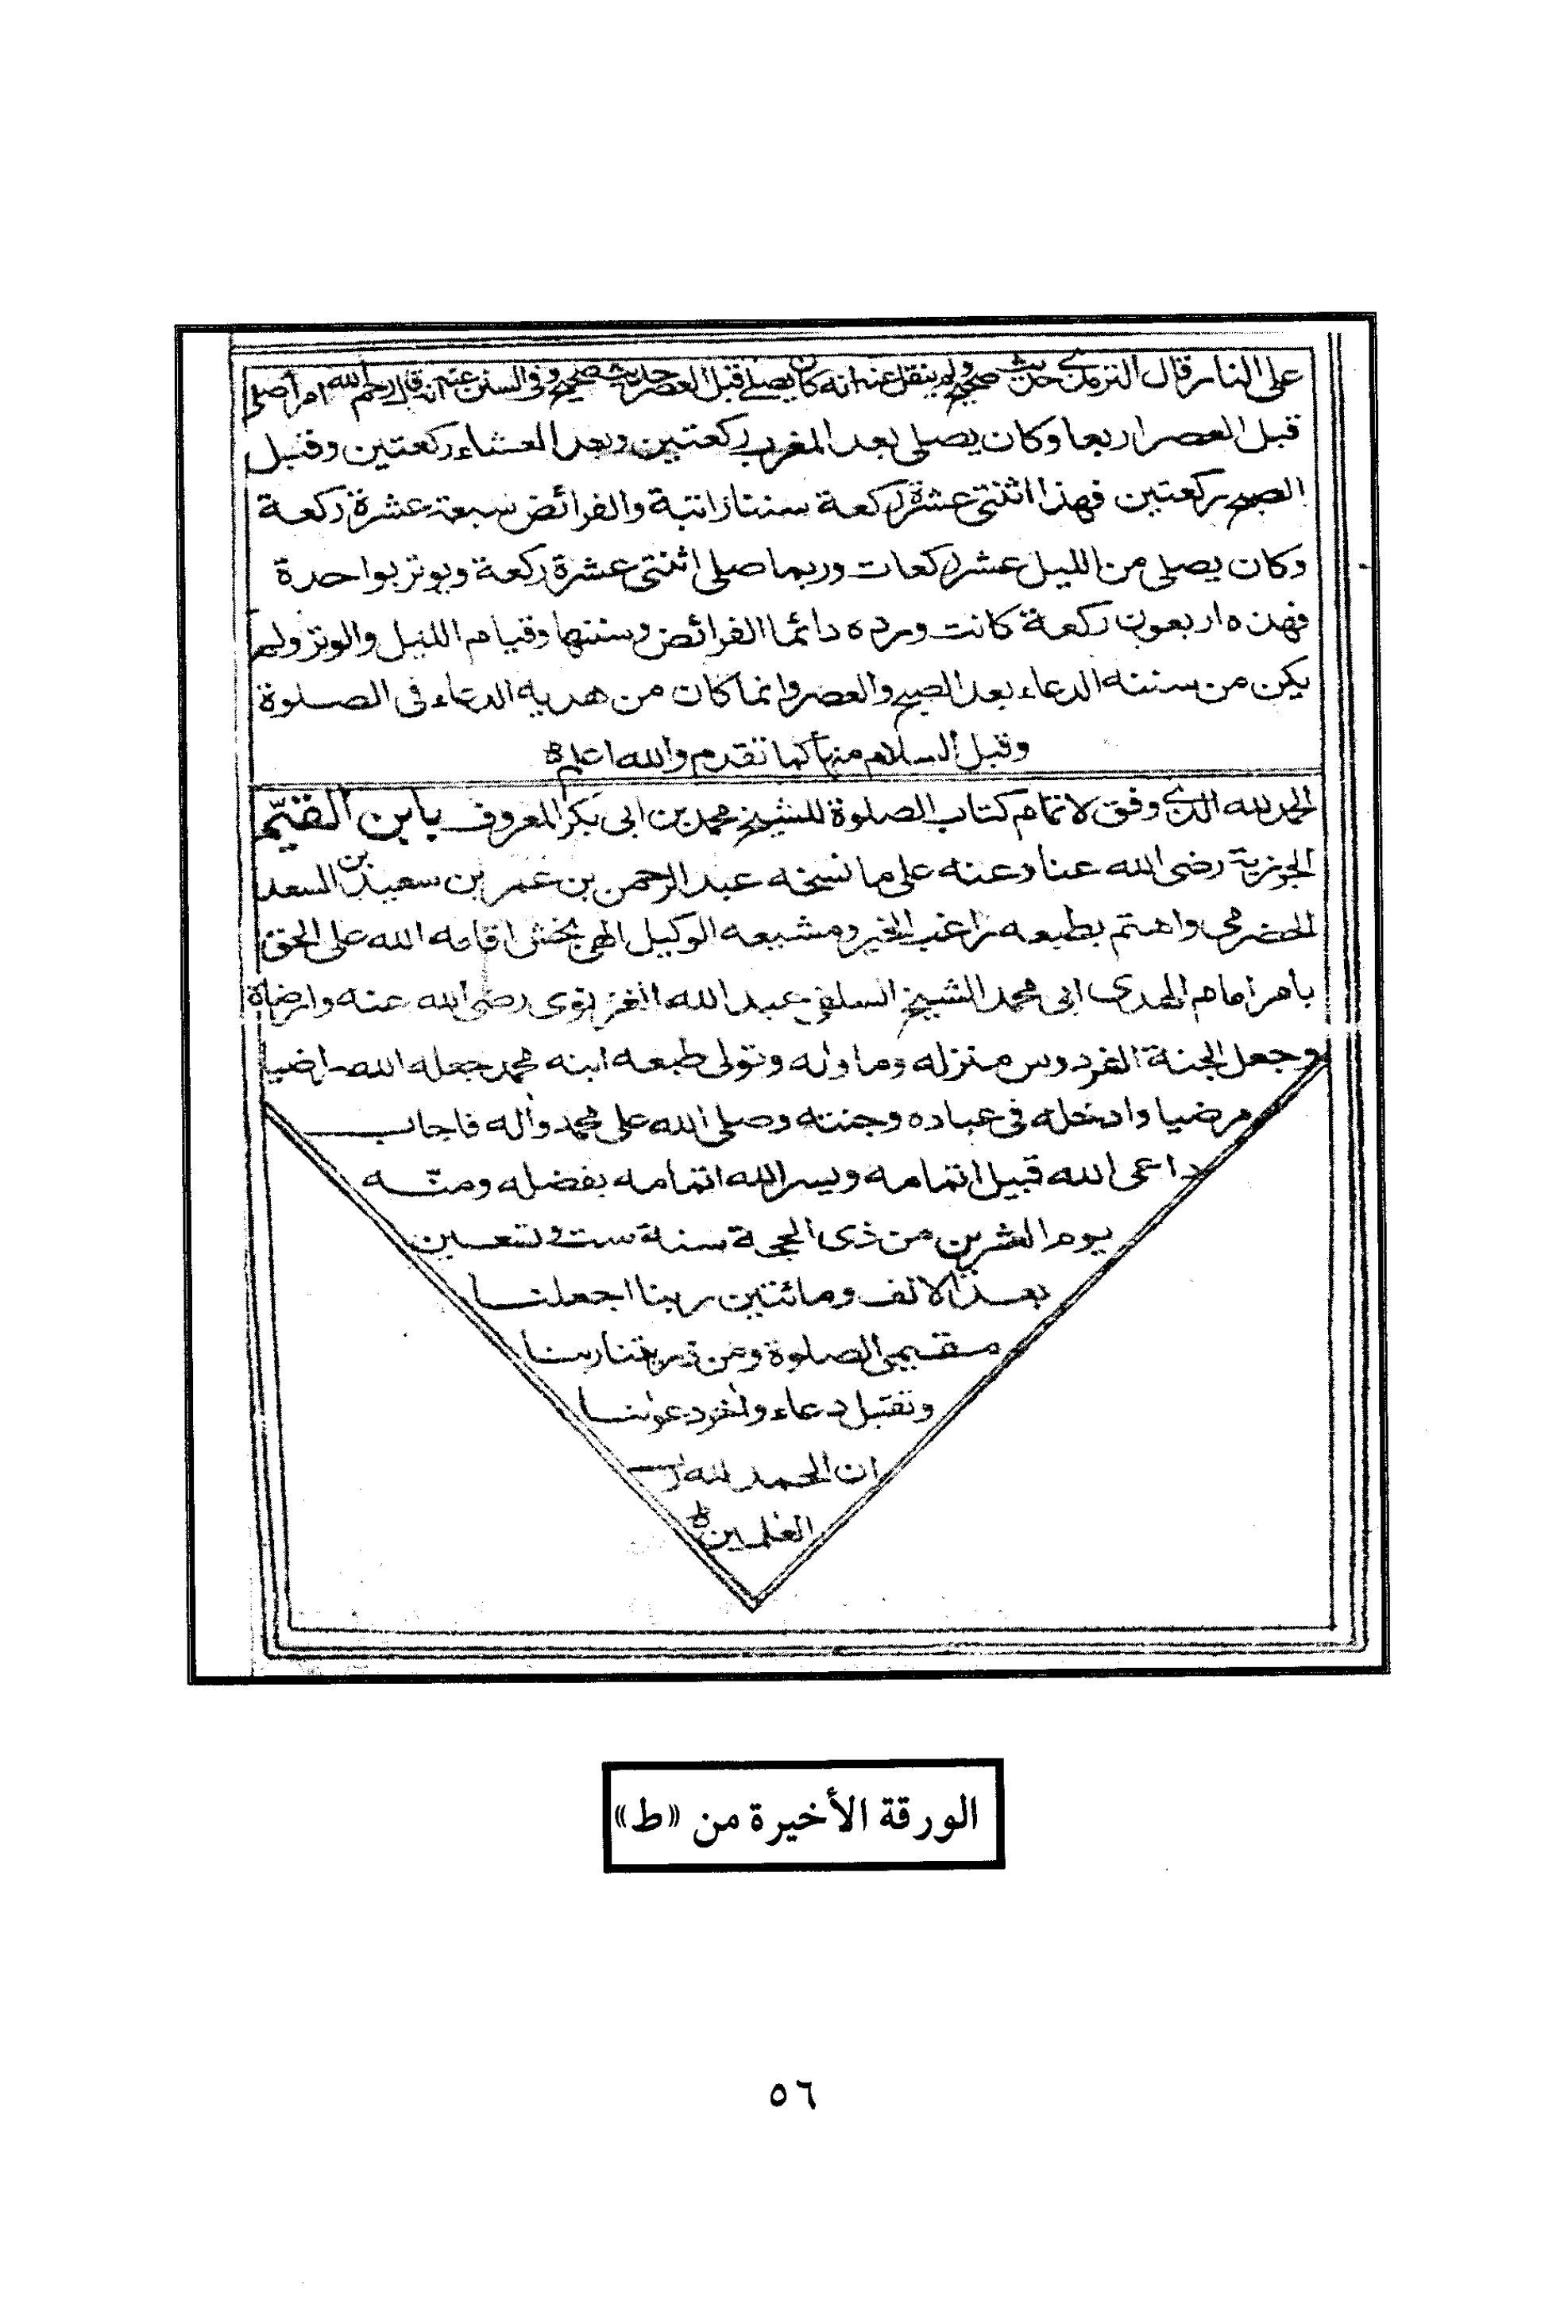 على النار قال الترمذي حديث صحيح ولم ينقل عنه انه كان يصلي قبل العصر حديث صحيح وفى السنن عنه انه قال رحم الله امرأ صلى
قبل العصر اربعا وكان يصلى بعد المغرب ركعتين وبعد العشاء ركعتين وقبل
الصبح ركعتين فهذا اثنتى عشرة ركعة سننا راتبة والفرائض سبعة عشرة ركعة
وكان يصلى من الليل عشر ركعات وربما صلى اثنتى عشرة ركعة ويوتر بواحدة
فهذه اربعون ركعة كانت ورده دائما الفرائض وسننها وقيام الليل والوتر ولم
يكن من سننه الدعاء بعد الصبح والعصر وانما كان من هديه الدعاء فى الصلوة
وقبل السلام منها كما تقدم والله اعلم
الحمد لله الذى وفق لاتمام كتاب الصلوة للشيخ محمد بن ابى بكر المعروف بابن القيّم
الجوزية رضى الله عنا وعنه على ما نسخه عبد الرحمن بن عمر بن سعيد بن السعد
الحضرمى واهتم بطبعه راغب الخير ومشيعه الوكيل الهى بخش اقامه الله على الحق
بامر امام الهدى ابى محمد الشيخ السلفى عبد الله الغزنوى رضى الله عنه وارضاه
وجعل الجنة الفردوس منزله وماوله وتولى طبعه ابنه محمد جعله الله راضيا
مرضيا وادخله فى عباده وجنته وصلى الله على محمد وآله فاجاب
داعى الله قبيل اتمامه ويسر الله اتمامه بفضله ومنّه
يوم العشرين من ذى الحجة سنة ست وتسعين
بعد الالف ومائتين ربنا اجعلنا
مقيمى الصلوة ومن ذريتنا ربنا
وتقبل دعاء واخر دعوٰنا
ان الحمد لله رب
العٰلمين
الورقة الأخيرة من «ط»
٥٦